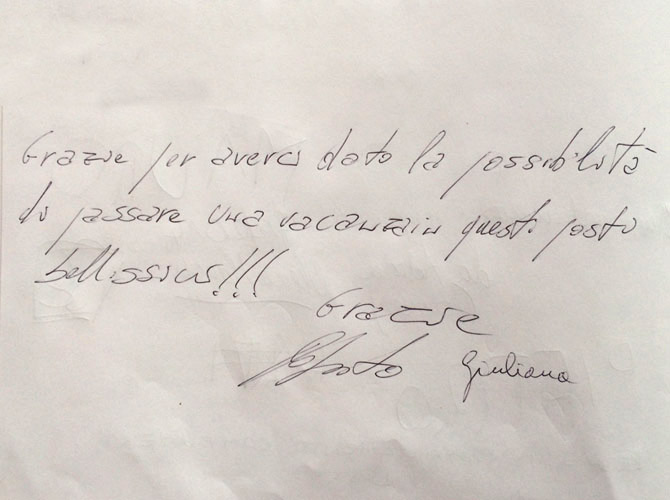 Grazie per averci dato la possibilità
di passare una vacanza in questo posto
bellissimo!!!
Grazie
Giuliana